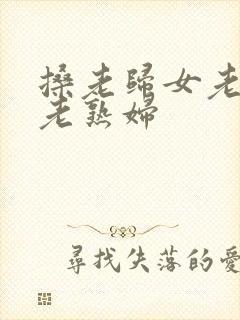 搡老歸女老
老熟婦
尋找失落的愛